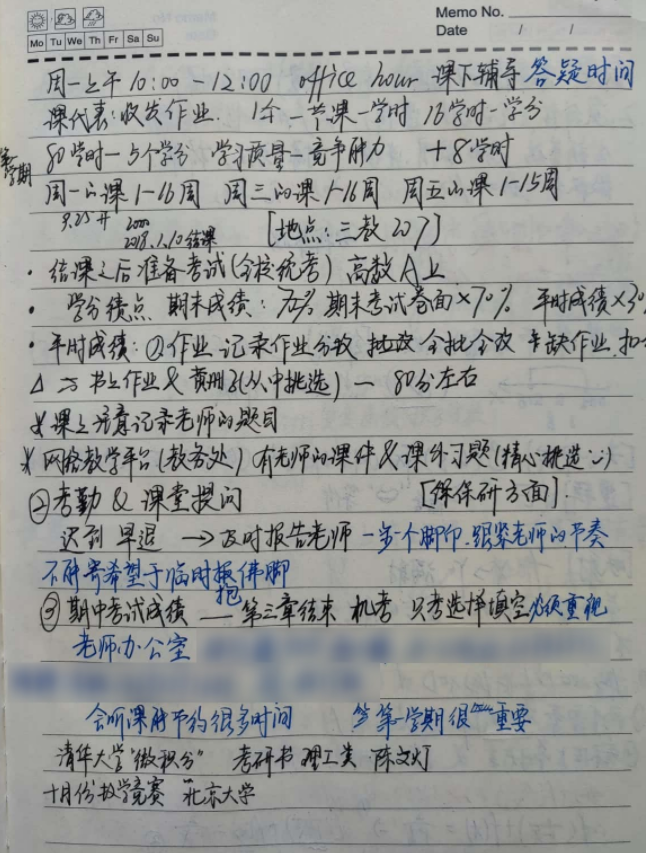 Memo No.
Mo Tu We Th Fr Sa Su
Date / /
周一上午 10:00 - 12:00 office hour 课下辅导 答疑时间
课代表:收发作业. 1个 一节课一学时 16学时一学分
第一学期 80学时一5个学分 学习质量-竞争能力 +8学时
周一的课 1-16周 周三的课 1-16周 周五的课 1-15周
9.25开 2018.1.10结课 [地点:三教207]
· 结课之后准备考试(全校统考) 高数A上
· 学分绩点 期末成绩: 70% 期末考试卷面×70% 平时成绩×30
· 平时成绩:①作业 记录作业分数 批改 全批全改 缺作业.扣
△ 书上作业& (从中挑选) — 80分左右
※课上注意记录老师的题目
※网络教学平台(教务处) 有老师的课件&课外习题(精心挑选)
②考勤 & 课堂提问 [保研方面].
迟到 早退 → 及时报告老师 一步一个脚印.跟紧老师的节奏
不能寄希望于临时抱佛脚
③期中考试成绩 — 第三章结束 机考 只考选择填空 必须重视
老师办公室
会听课能节约很多时间 第一学期很重要
清华大学"微积分" 考研书 理工类 陈文灯
十月份数学竞赛 北京大学